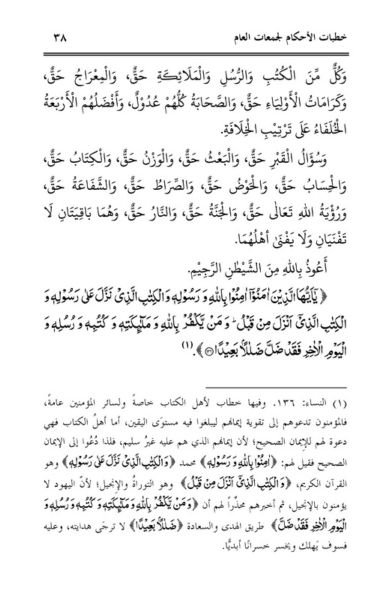 خطبات الأحكام لجمعات العام ٣٨
وَكُلٌّ مِّنَ الْكُتُبِ وَالرُّسُلِ وَالْمَلَائِكَةِ حَقٌّ، وَالْمِعْرَاجُ حَقٌّ،
وَكَرَامَاتُ الْأَوْلِيَاءِ حَقٌّ، وَالصَّحَابَةُ كُلُّهُمْ عُدُوْلٌ، وَأَفْضَلُهُمُ الْأَرْبَعَةُ
الْخُلَفَاءُ عَلَى تَرْتِيْبِ الْخِلَافَةِ.
وَسُؤَالُ الْقَبْرِ حَقٌّ، وَالْبَعْثُ حَقٌّ، وَالْوَزْنُ حَقٌّ، وَالْكِتَابُ حَقٌّ،
وَالْحِسَابُ حَقٌّ، وَالْحَوْضُ حَقٌّ، وَالصِّرَاطُ حَقٌّ، وَالشَّفَاعَةُ حَقٌّ،
وَرُؤْيَةُ اللهِ تَعَالَى حَقٌّ، وَالْجَنَّةُ حَقٌّ، وَالنَّارُ حَقٌّ، وَهُمَا بَاقِيَتَانِ لَا
تَفْنَيَانِ وَلَا يَفْنَى أَهْلُهُمَا.
أَعُوذُ بِاللهِ مِنَ الشَّيْطٰنِ الرَّجِيْمِ.
﴿ يٰۤاَيُّهَا الَّذِيْنَ اٰمَنُوْۤا اٰمِنُوْا بِاللّٰهِ وَ رَسُوْلِهٖ وَ الْكِتٰبِ الَّذِيْ نَزَّلَ عَلٰى رَسُوْلِهٖ وَ
الْكِتٰبِ الَّذِيْۤ اَنْزَلَ مِنْ قَبْلُ ؕ وَ مَنْ يَّكْفُرْ بِاللّٰهِ وَ مَلٰٓئِكَتِهٖ وَ كُتُبِهٖ وَ رُسُلِهٖ وَ
الْيَوْمِ الْاٰخِرِ فَقَدْ ضَلَّ ضَلٰلًۢا بَعِيْدًا﴾. (١)
(١) النساء: ١٣٦. وفيها خطاب لأهل الكتاب خاصةً ولسائر المؤمنين عامةً،
فالمؤمنون تدعوهم إلى تقوية إيمانهم ليبلغوا فيه مستوى اليقين، أما أهل الكتاب فهي
دعوة لهم للإيمان الصحيح؛ لأن إيمانهم الذي هم عليه غيرُ سليم، فلذا دُعُوا إلى الإيمان
الصحيح فقيل لهم: ﴿اٰمِنُوْا بِاللّٰهِ وَ رَسُوْلِهٖ﴾ محمد ﴿وَ الْكِتٰبِ الَّذِيْ نَزَّلَ عَلٰى رَسُوْلِهٖ﴾ وهو
القرآن الكريم، ﴿وَ الْكِتٰبِ الَّذِيْۤ اَنْزَلَ مِنْ قَبْلُ﴾ وهو التوراةُ والإنجيل؛ لأنّ اليهود لا
يؤمنون بالإنجيل، ثم أخبرهم محذِّراً لهم أن ﴿وَ مَنْ يَّكْفُرْ بِاللّٰهِ وَ مَلٰٓئِكَتِهٖ وَ كُتُبِهٖ وَ رُسُلِهٖ وَ
الْيَوْمِ الْاٰخِرِ فَقَدْ ضَلَّ﴾ طريق الهدى والسعادة ﴿ضَلٰلًۢا بَعِيْدًا﴾ لا ترجى هدايته، وعليه
فسوف يَهلك ويخسر خسرانًا أبديًّا.